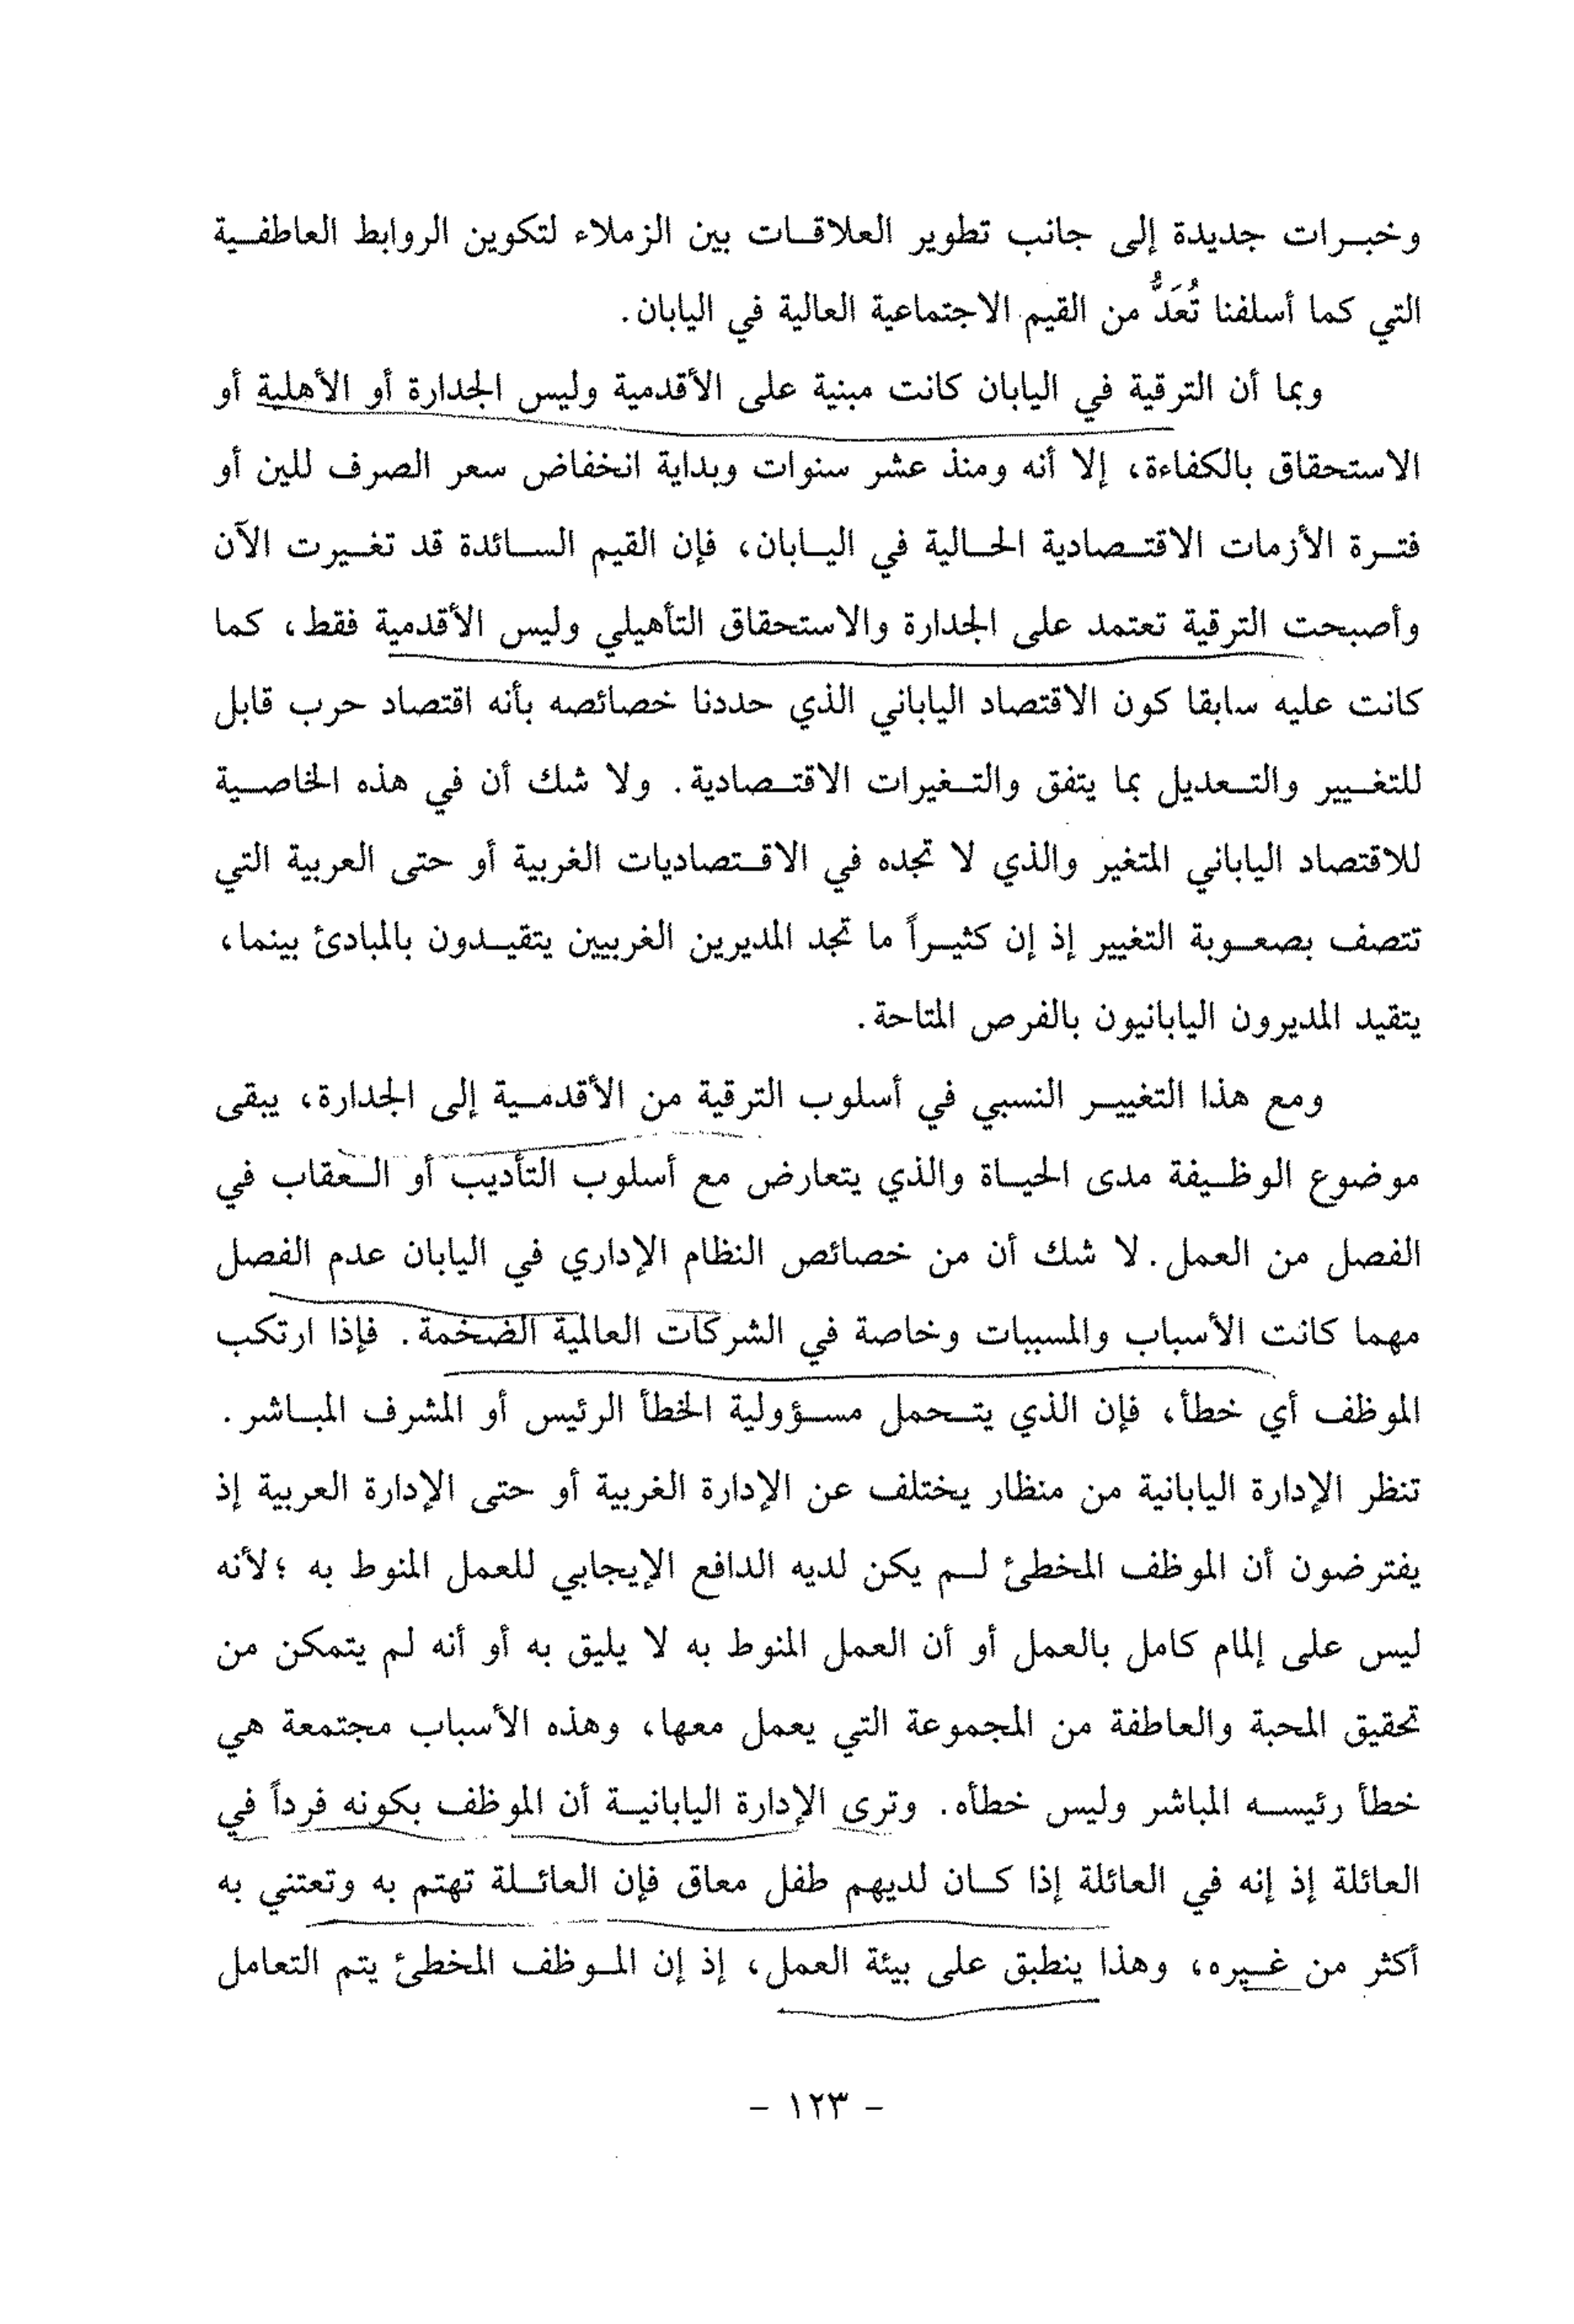 وخبرات جديدة إلى جانب تطوير العلاقات بين الزملاء لتكوين الروابط العاطفية
التي كما أسلفنا تُعَدُّ من القيم الاجتماعية العالية في اليابان.
وبما أن الترقية في اليابان كانت مبنية على الأقدمية وليس الجدارة أو الأهلية أو
الاستحقاق بالكفاءة، إلا أنه ومنذ عشر سنوات وبداية انخفاض سعر الصرف للين أو
فترة الأزمات الاقتصادية الحالية في اليابان، فإن القيم السائدة قد تغيرت الآن
وأصبحت الترقية تعتمد على الجدارة والاستحقاق التأهيلي وليس الأقدمية فقط، كما
كانت عليه سابقا كون الاقتصاد الياباني الذي حددنا خصائصه بأنه اقتصاد حرب قابل
للتغيير والتعديل بما يتفق والتغيرات الاقتصادية. ولا شك أن في هذه الخاصية
للاقتصاد الياباني المتغير والذي لا تجده في الاقتصاديات الغربية أو حتى العربية التي
تتصف بصعوبة التغيير إذ إن كثيراً ما تجد المديرين الغربيين يتقيدون بالمبادئ بينما،
يتقيد المديرون اليابانيون بالفرص المتاحة.
ومع هذا التغيير النسبي في أسلوب الترقية من الأقدمية إلى الجدارة، يبقى
موضوع الوظيفة مدى الحياة والذي يتعارض مع أسلوب التأديب أو العقاب في
الفصل من العمل. لا شك أن من خصائص النظام الإداري في اليابان عدم الفصل
مهما كانت الأسباب والمسببات وخاصة في الشركات العالمية الضخمة. فإذا ارتكب
الموظف أي خطأ، فإن الذي يتحمل مسؤولية الخطأ الرئيس أو المشرف المباشر.
تنظر الإدارة اليابانية من منظار يختلف عن الإدارة الغربية أو حتى الإدارة العربية إذ
يفترضون أن الموظف المخطئ لم يكن لديه الدافع الإيجابي للعمل المنوط به ؛لأنه
ليس على إلمام كامل بالعمل أو أن العمل المنوط به لا يليق به أو أنه لم يتمكن من
تحقيق المحبة والعاطفة من المجموعة التي يعمل معها، وهذه الأسباب مجتمعة هي
خطأ رئيسه المباشر وليس خطأه. وترى الإدارة اليابانية أن الموظف بكونه فرداً في
العائلة إذ إنه في العائلة إذا كان لديهم طفل معاق فإن العائلة تهتم به وتعتني به
أكثر من غيره، وهذا ينطبق على بيئة العمل، إذ إن الموظف المخطئ يتم التعامل
- ١٢٣ -